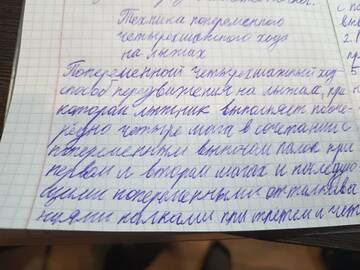 Техника попеременного
четырехшажного хода
на лыжах
Попеременный четырехшажный ход
способ передвижения на лыжах, при
котором лыжник выполняет пооче-
редно четыре шага в сочетании с
попеременным выносом палок при
первом и втором шагах и последую-
щими попеременными отталкива
ниями палками при третьем и чет
с по
2. П